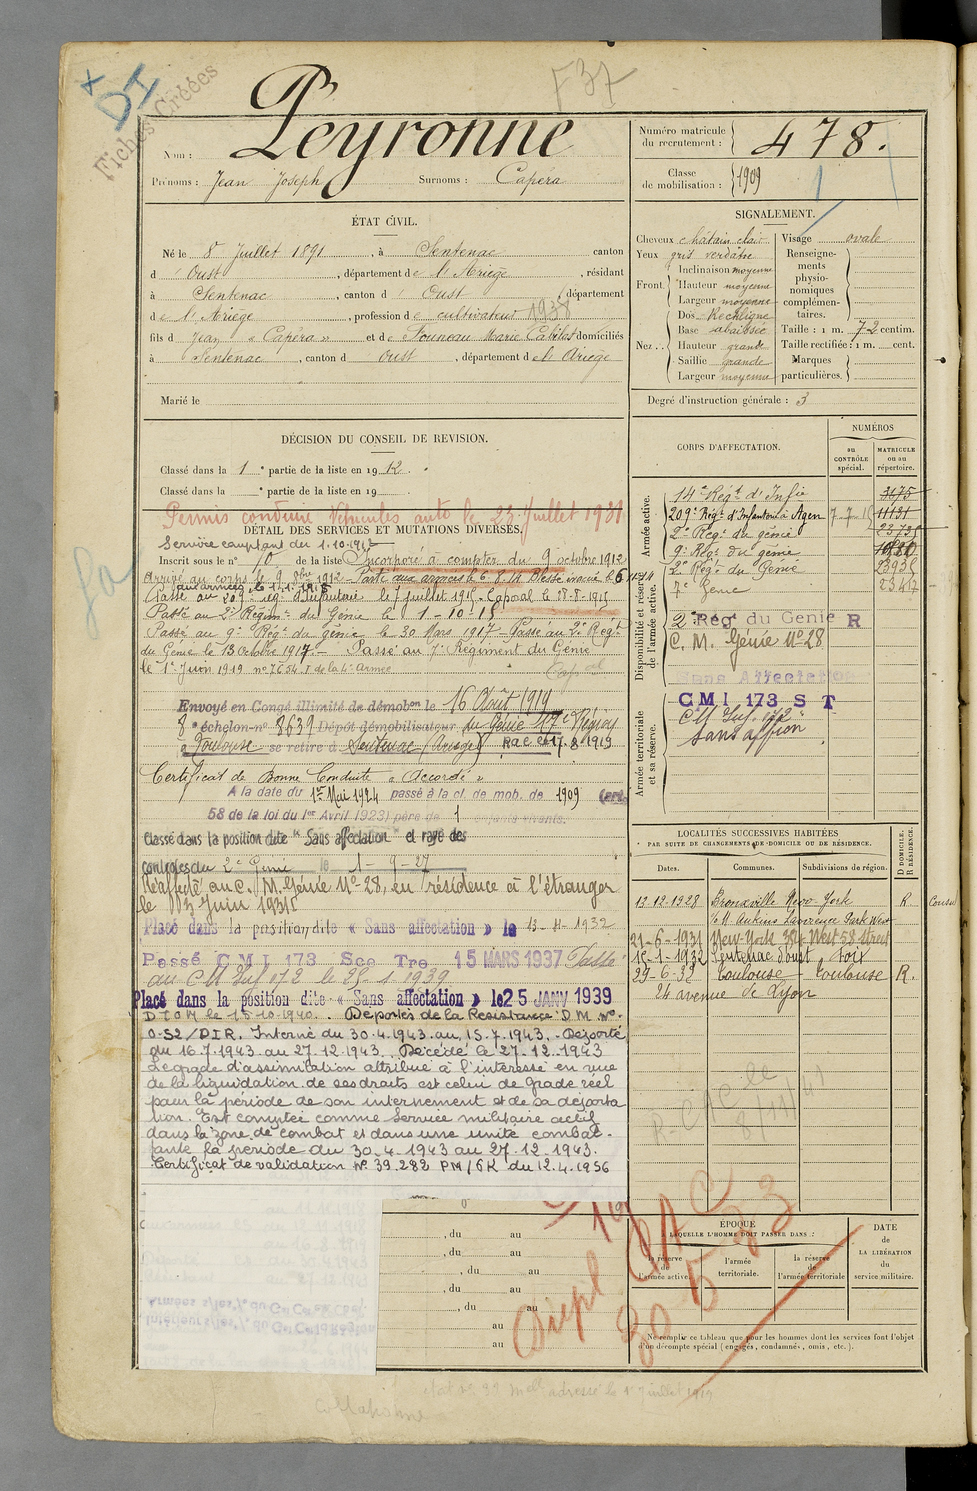 DI
Fiches Créées
F 37
Nom : Peyronne
Prénoms : Jean Joseph Surnoms : Capéra
Numéro matricule du recrutement : 478.
Classe de mobilisation : 1909
ÉTAT CIVIL.
Né le 8 Juillet 1891, à Sentenac canton
d'Oust, département de l'Ariège, résidant
à Sentenac, canton d'Oust département
de l'Ariège, profession de cultivateur 1938
fils d Jean "Capéra" et de Founeau Marie Cabilas domiciliés
à Sentenac, canton d'Oust, département de l'Ariège
Marié le
SIGNALEMENT.
Cheveux châtain clair
Yeux gris verdâtre
Front. Inclinaison moyenne
Hauteur moyenne
Largeur moyenne
Nez.. Dos Rectiligne
Base abaissée
Hauteur grande
Saillie grande
Largeur moyenne
Visage ovale
Renseignements physionomiques complémentaires.
Taille : 1 m. 72 centim.
Taille rectifiée : 1 m. cent.
Marques particulières.
Degré d'instruction générale : 3
DÉCISION DU CONSEIL DE REVISION.
Classé dans la 1e partie de la liste en 1912.
Classé dans la e partie de la liste en 19
Permis conduire Véhicules auto le 23 Juillet 1931
DÉTAIL DES SERVICES ET MUTATIONS DIVERSES.
Service comptant du 1.10.1912
Inscrit sous le n° 10 de la liste Incorporé à compter du 9 octobre 1912
Arrivé au corps le 9 8bre 1912 - Parti aux armées le 6.8.14 Blessé
Passé au 209e rég. d'Infanterie le 7 juillet 1915 - Caporal le 28-8-1915
Passé au 2e Régimt du Génie le 1-10-15
Passé au 9e Régt du génie le 30 Mars 1917 - Passé au 2e Régt
du Génie le 13 Octobre 1917 - Passé au 7e Régiment du Génie
le 1er Juin 1919 de la 4e Armée
Caporal
Envoyé en Congé illimité de démobon le 16 Août 1919
8e échelon-n° 8639 Dépôt démobilisateur du Génie 17e Région
à Toulouse se retire à Sentenac (Ariège) R.a.c. le 17.8.1919
Certificat de Bonne Conduite "Accordé"
A la date du 1er Mai 1924 passé à la cl. de mob. de 1909 (art.
58 de la loi du 1er Avril 1923) père de 1 enfants vivants.
Classé dans la position dite "Sans affectation" et rayé des
contrôles du 2e Génie le 1-9-27
Réaffecté au C.M. Génie N° 28, en résidence à l'étranger
le 3 Juin 1931
Placé dans la position dite « Sans affectation » le 13-4-1932
Passé C M I 173 Sce Tre 15 MARS 1937 Passé
au CM Inf 172 le 25-1-1939
Placé dans la position dite « Sans affectation » le 25 JANV 1939
DIOM le 15-10-1940. Déportés de la Résistance D.M. N°
0-52/DIR. Interné du 30.4.1943 au 15.7.1943. - Déporté
du 16.7.1943 au 27.12.1943. Décédé le 27.12.1943
Le grade d'assimilation attribué à l'intéressé en vue
de la liquidation de ses droits est celui de grade réel
pour la période de son internement et de sa déporta
tion. Est comptée comme Service militaire actif
dans la zone de combat et dans une unité combat-
tante la période du 30-4-1943 au 27-12-1943.
Certificat de validation N° 39.282 PM/6K du 12.4.1956
, du au
, du au
, du au
, du au
au
au
CORPS D'AFFECTATION.
NUMÉROS
au CONTRÔLE spécial.
MATRICULE ou au répertoire.
Armée active.
14e Régt d'Infie 3675
209e Régt d'Infanterie à Agen 11131
2e Régt du génie 23735
9e Régt du génie
Disponibilité et réserve de l'armée active.
2e Régt du Génie 23935
7e Génie
2e Rég. du Génie R
C. M. Génie N° 28
Sans Affectation
Armée territoriale et sa réserve.
CMI 173 S T
CM Inf. 172
Sans affon
LOCALITÉS SUCCESSIVES HABITÉES
PAR SUITE DE CHANGEMENTS DE DOMICILE OU DE RÉSIDENCE.
Dates. Communes. Subdivisions de région. D DOMICILE. R RÉSIDENCE.
12.12.1928 Bronxville New-York R. Consu
c/o M. Aukins Lawrence Park West
21-6-1931 New-York 324 West 58 Street
15-1-1932 Sentenac d'oust Foix
29-6-39 Toulouse - Toulouse R.
24 avenue de Lyon
R-CAC le
8/11/41
ÉPOQUE
A LAQUELLE L'HOMME DOIT PASSER DANS :
la réserve de l'armée active
l'armée territoriale.
la réserve de l'armée territoriale
DATE de LA LIBÉRATION du service militaire.
Ne remplir ce tableau que pour les hommes dont les services font l'objet
d'un décompte spécial (engagés, condamnés, omis, etc.).
Dupl CAC
30 5 83
adressé le 1er Juillet 1919